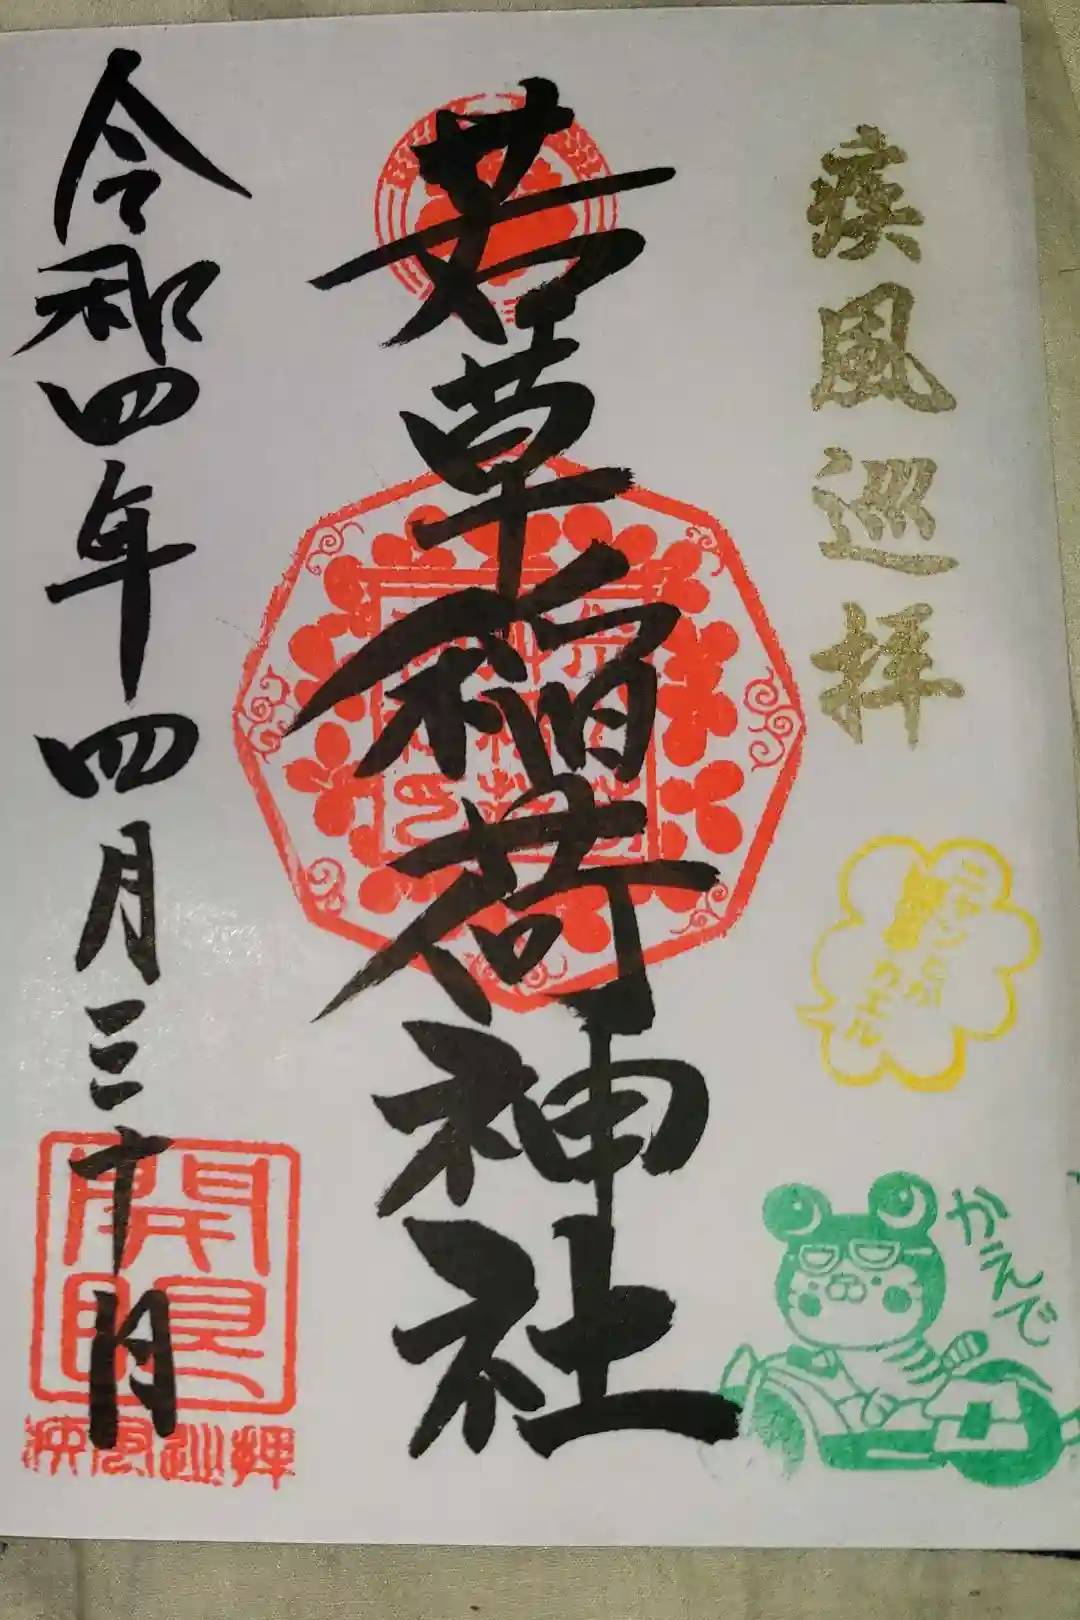 疾風巡拝
かえんで
若草稲荷神社
令和四年四月三十日
疾風巡拝